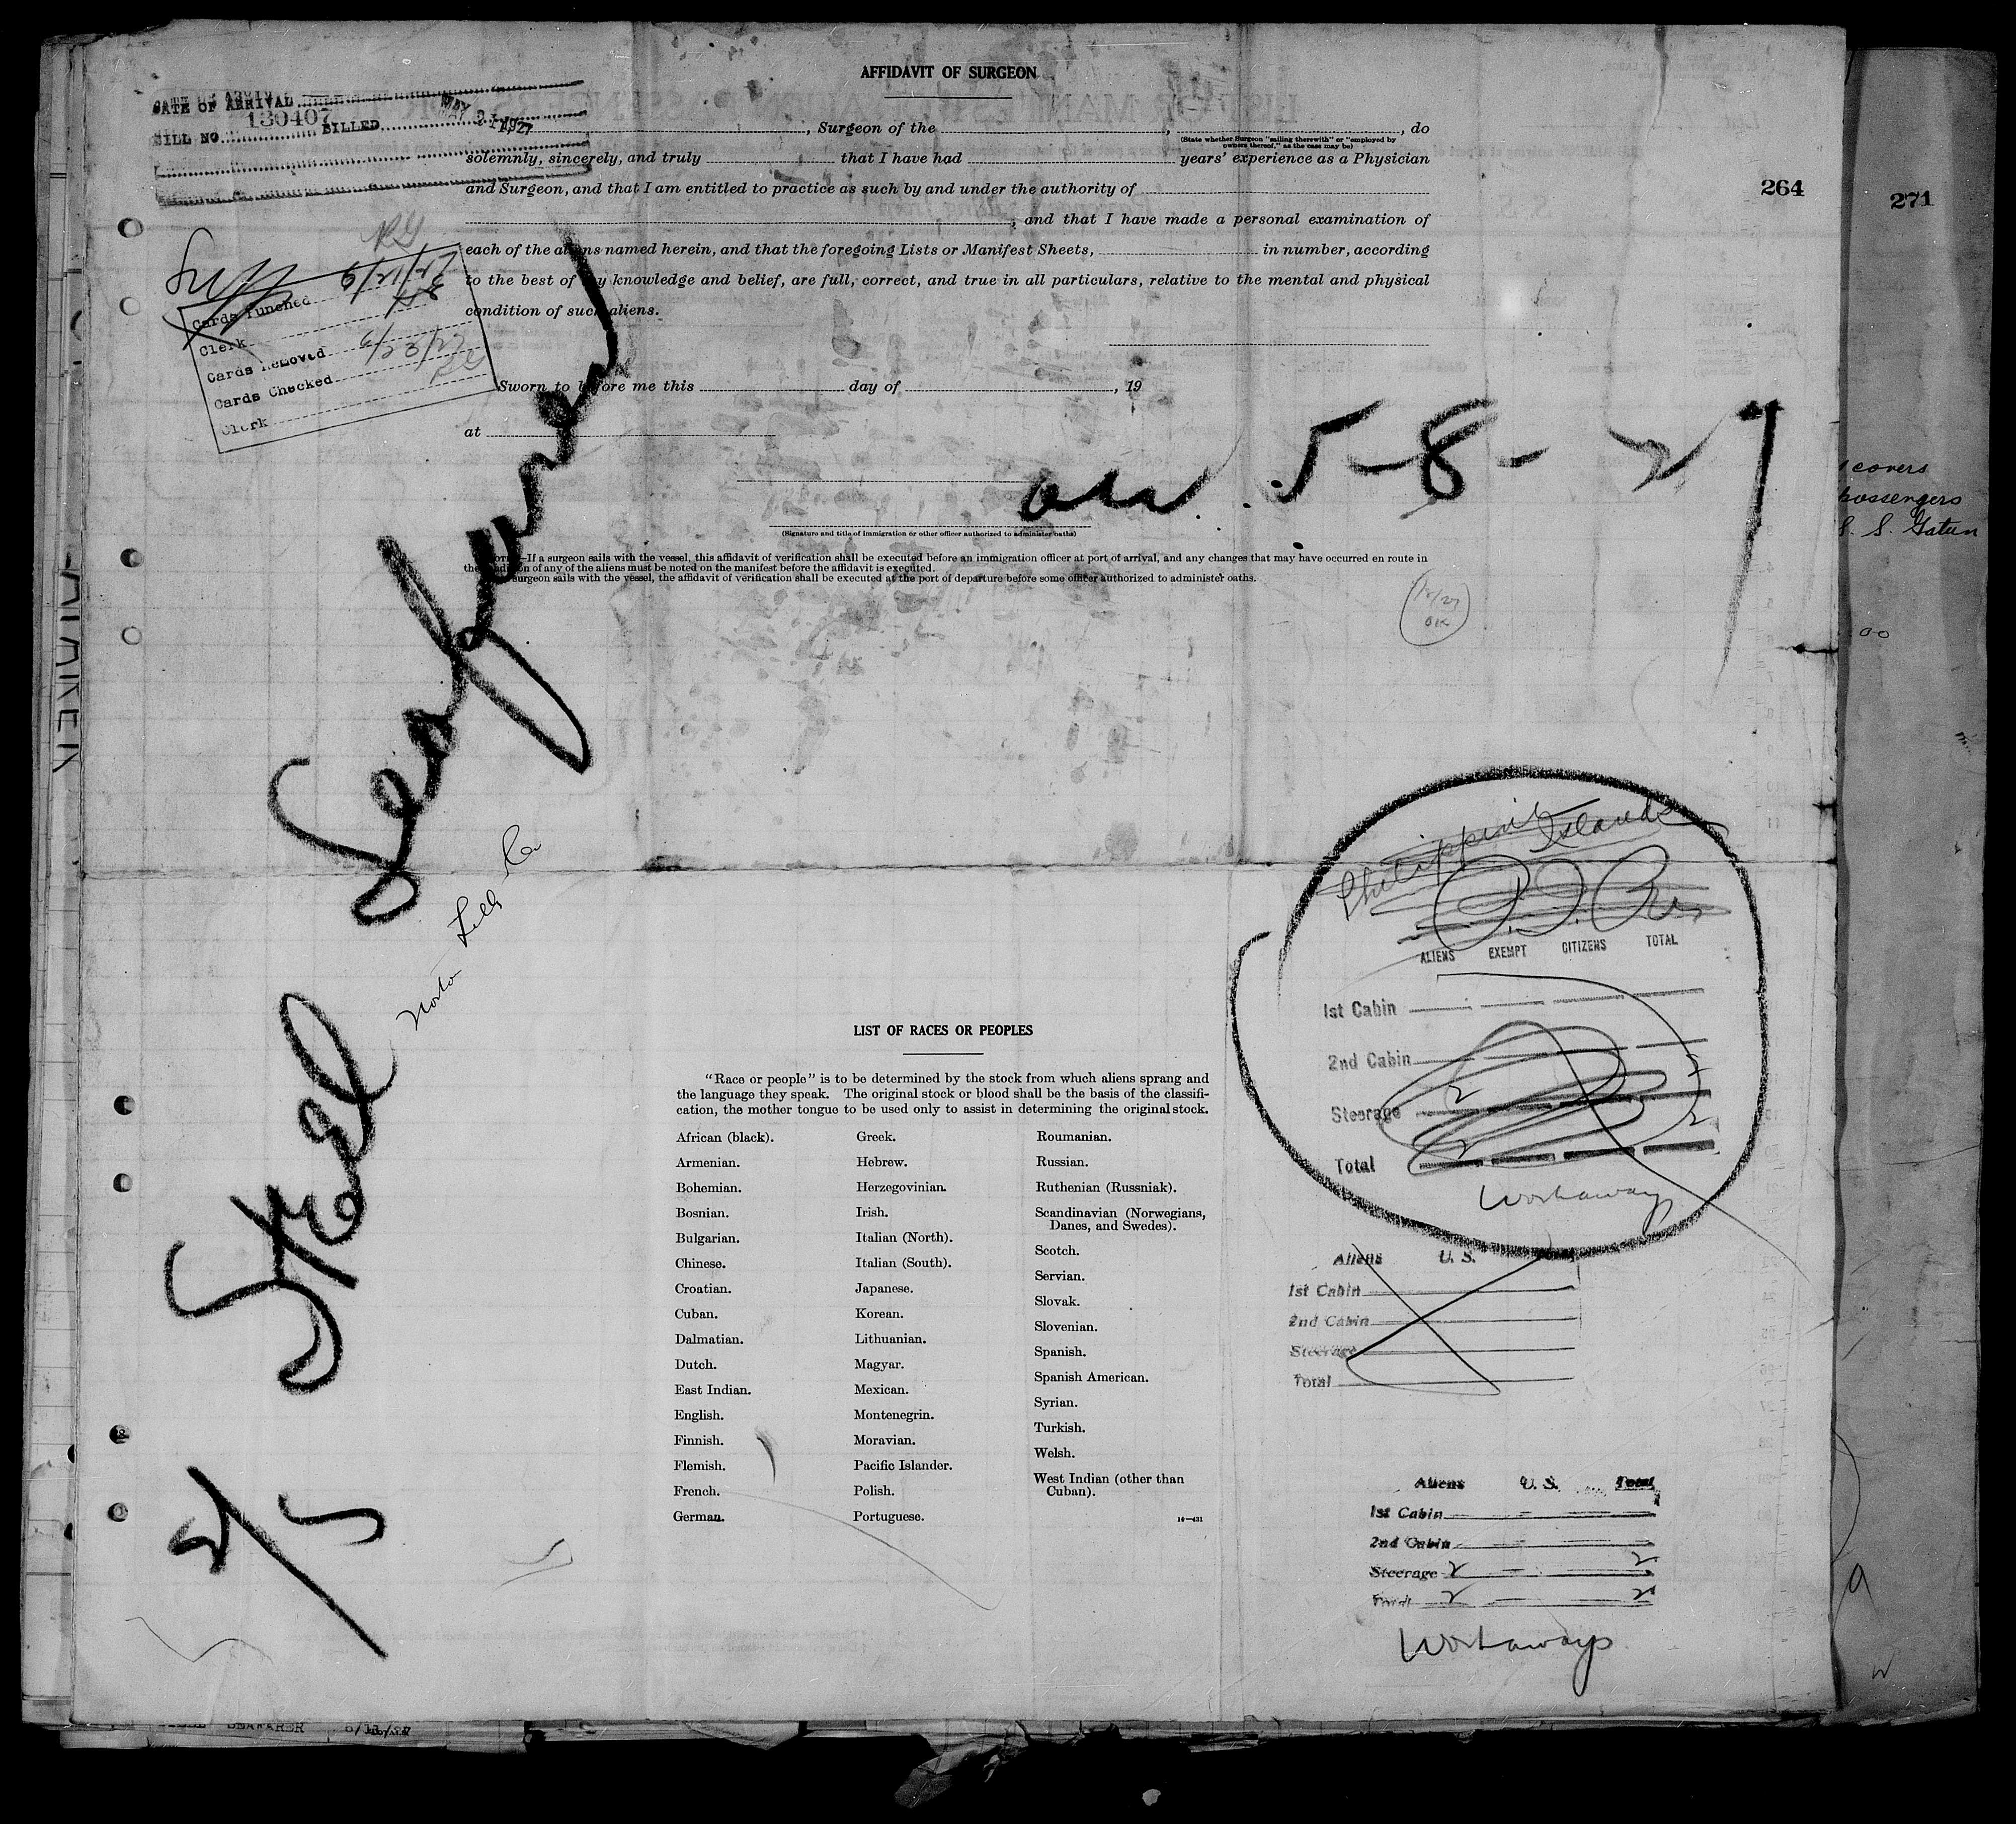 AFFIDAVIT OF SURGEON
DATE OF ARRIVAL
BILL NO. 130407 BILLED MAY 1927
, Surgeon of the , , do
(State whether Surgeon "sailing therewith" or "employed by owners thereof," as the case may be)
solemnly, sincerely, and truly that I have had years' experience as a Physician
and Surgeon, and that I am entitled to practice as such by and under the authority of
, and that I have made a personal examination of
each of the aliens named herein, and that the foregoing Lists or Manifest Sheets, in number, according
to the best of my knowledge and belief, are full, correct, and true in all particulars, relative to the mental and physical
condition of such aliens.
Sworn to before me this day of , 19
at
264
271
Cards Punched
Clerk
Cards Removed 6/23/27
Cards Checked
Clerk
5-8-27
(Signature and title of immigration or other officer authorized to administer oaths)
—If a surgeon sails with the vessel, this affidavit of verification shall be executed before an immigration officer at port of arrival, and any changes that may have occurred en route in
the condition of any of the aliens must be noted on the manifest before the affidavit is executed.
surgeon sails with the vessel, the affidavit of verification shall be executed at the port of departure before some officer authorized to administer oaths.
covers
passengers
S. S. Gatun
OK
S/S Steel Seafarer
Norton Lilly Co
Philippine Islands
ALIENS EXEMPT CITIZENS TOTAL
1st Cabin
2nd Cabin
Steerage 2 2
Total 2 2
Workaways
LIST OF RACES OR PEOPLES
"Race or people" is to be determined by the stock from which aliens sprang and
the language they speak. The original stock or blood shall be the basis of the classifi-
cation, the mother tongue to be used only to assist in determining the original stock.
African (black).
Armenian.
Bohemian.
Bosnian.
Bulgarian.
Chinese.
Croatian.
Cuban.
Dalmatian.
Dutch.
East Indian.
English.
Finnish.
Flemish.
French.
German.
Greek.
Hebrew.
Herzegovinian.
Irish.
Italian (North).
Italian (South).
Japanese.
Korean.
Lithuanian.
Magyar.
Mexican.
Montenegrin.
Moravian.
Pacific Islander.
Polish.
Portuguese.
Roumanian.
Russian.
Ruthenian (Russniak).
Scandinavian (Norwegians,
Danes, and Swedes).
Scotch.
Servian.
Slovak.
Slovenian.
Spanish.
Spanish American.
Syrian.
Turkish.
Welsh.
West Indian (other than
Cuban).
Aliens U. S. Total
1st Cabin
2nd Cabin
Steerage
Total
Aliens U. S. Total
1st Cabin
2nd Cabin
Steerage 2 2
Total 2 2
Workaways
SEAFARER